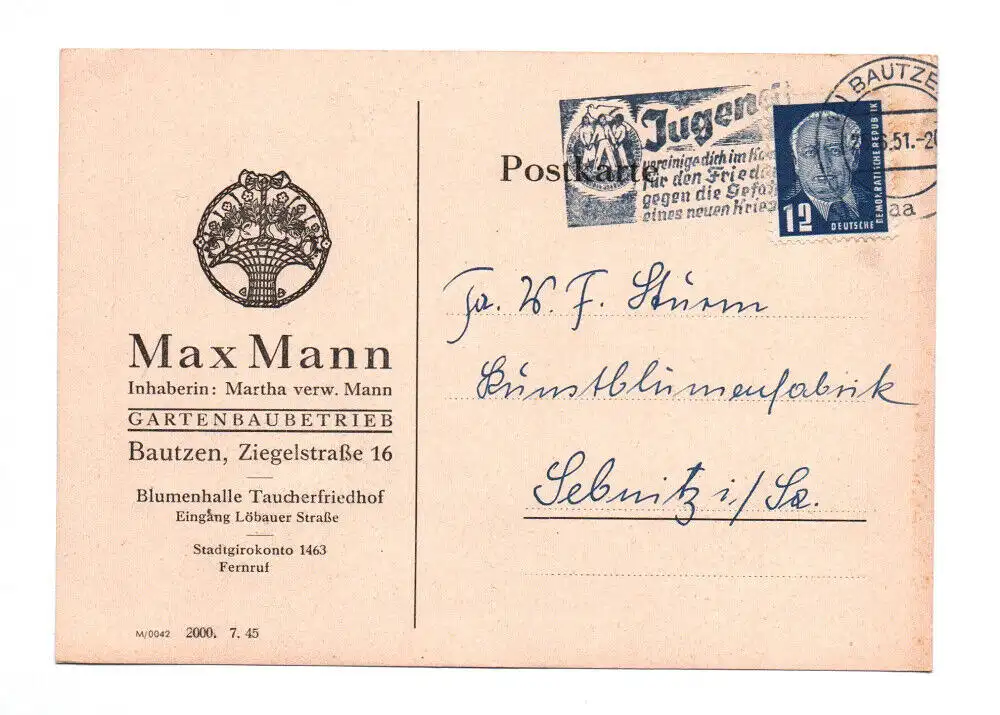 Max Mann
Inhaberin: Martha verw. Mann
GARTENBAUBETRIEB
Bautzen, Ziegelstraße 16
Blumenhalle Taucherfriedhof
Eingang Löbauer Straße
Stadtgirokonto 1463
Fernruf
M/0042 2000. 7. 45
Postkarte
Jugend
vereinige dich im
für den
gegen die
eines neuen
BAUTZE
6.51.-2
aa
12
DEUTSCHE
DEMOKRATISCHE REPUBLIK
Fa. W. F. Sturm
Kunstblumenfabrik
Sebnitz i/Sa.